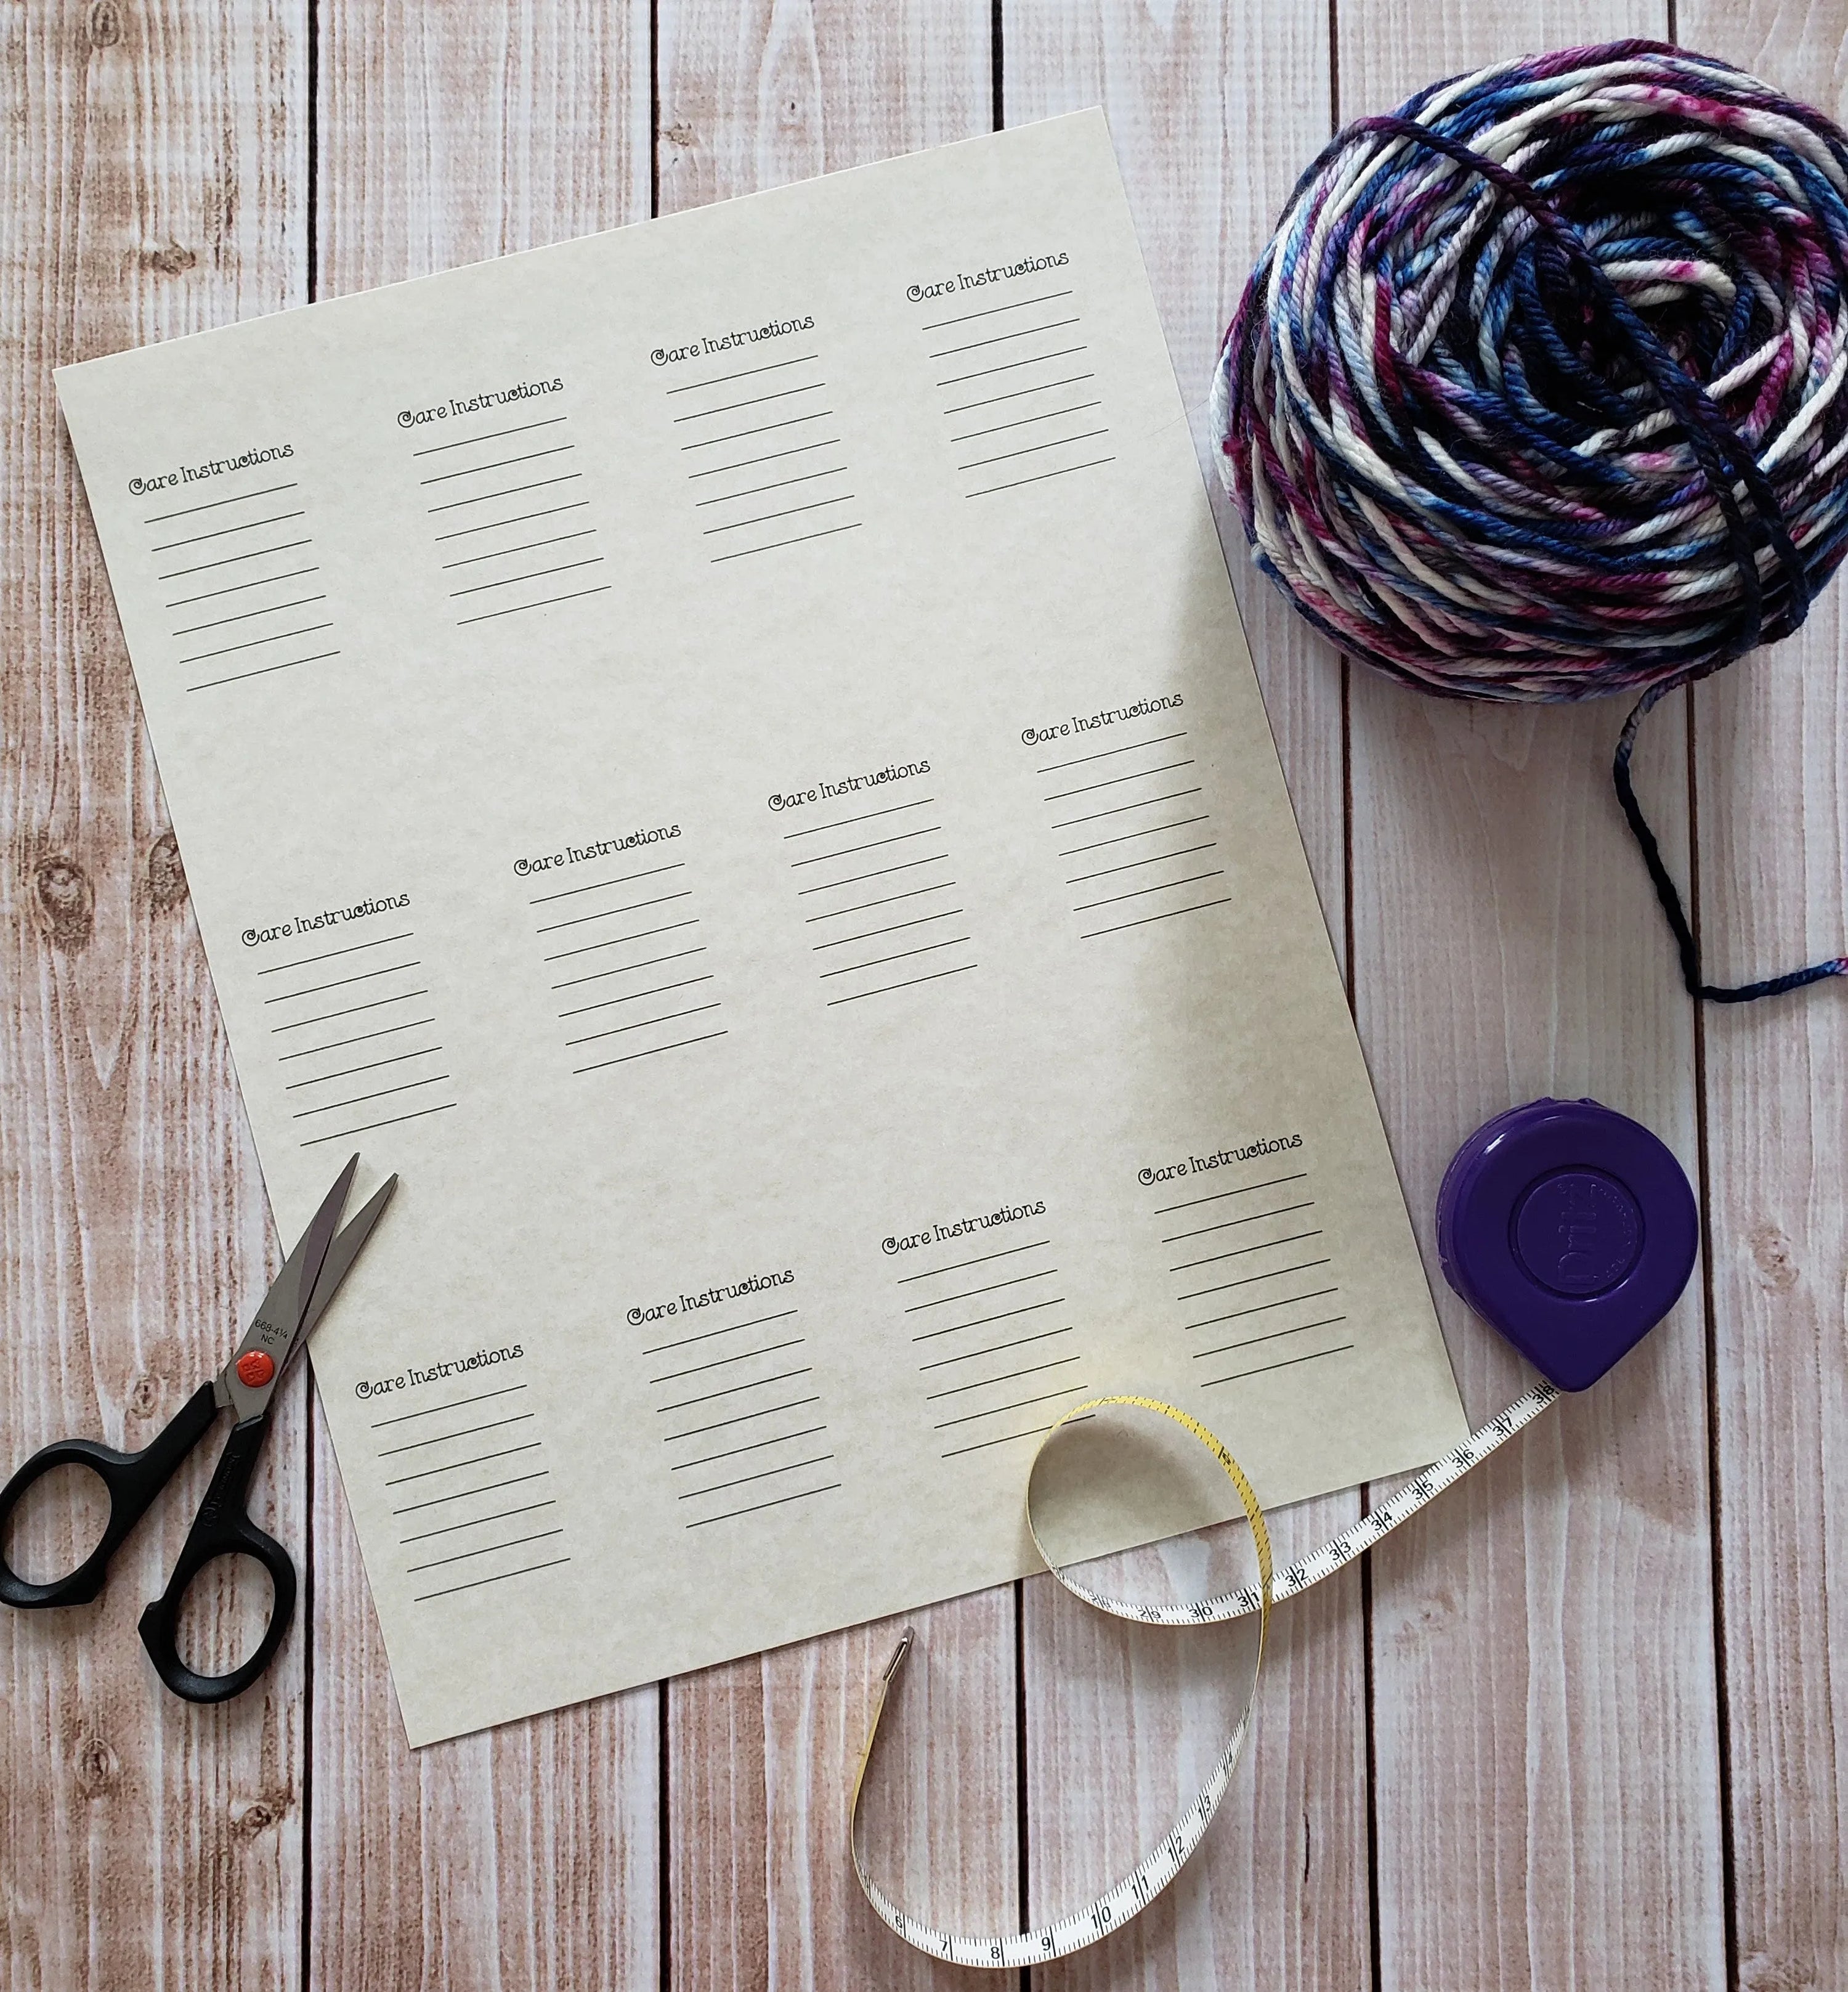 Care Instructions
Care Instructions
Care Instructions
Care Instructions
Care Instructions
Care Instructions
Care Instructions
Care Instructions
Care Instructions
Care Instructions
Care Instructions
Care Instructions
668-4¼
NC
38
37
36
35
34
33
32
31
30
29
13
12
11
10
9
8
7
6